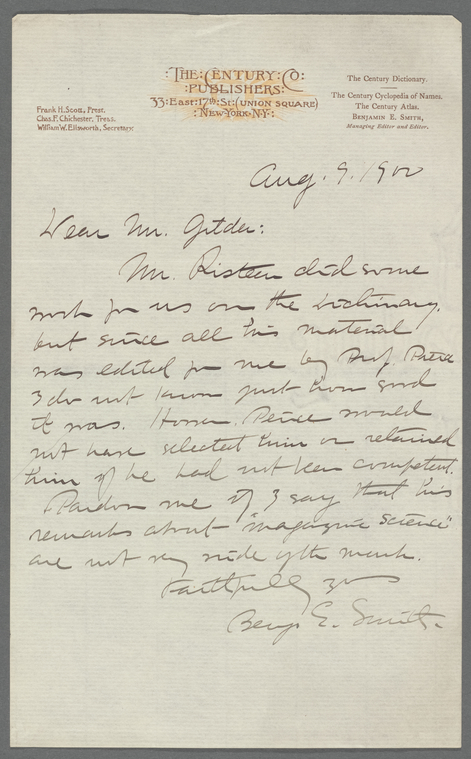 :THE:CENTURY:CO:
:PUBLISHERS:
33:East:17th:St:(UNION SQUARE)
:NEW·YORK·N·Y·:
Frank H. Scott, Prest.
Chas. F. Chichester, Treas.
William W. Ellsworth, Secretary.
The Century Dictionary.
The Century Cyclopedia of Names.
The Century Atlas.
BENJAMIN E. SMITH,
Managing Editor and Editor.
Aug. 9. 1900
Dear Mr. Gilder:
Mr. Risteen did some
work for us on the Dictionary,
but since all his material
was edited for me by Prof. Peirce
I do not know just how good
it was. However, Peirce would
not have selected him or retained
him if he had not been competent.
Pardon me if I say that his
remarks about "magazine science"
are not very wide of the mark.
Faithfully yrs
Benj. E. Smith.